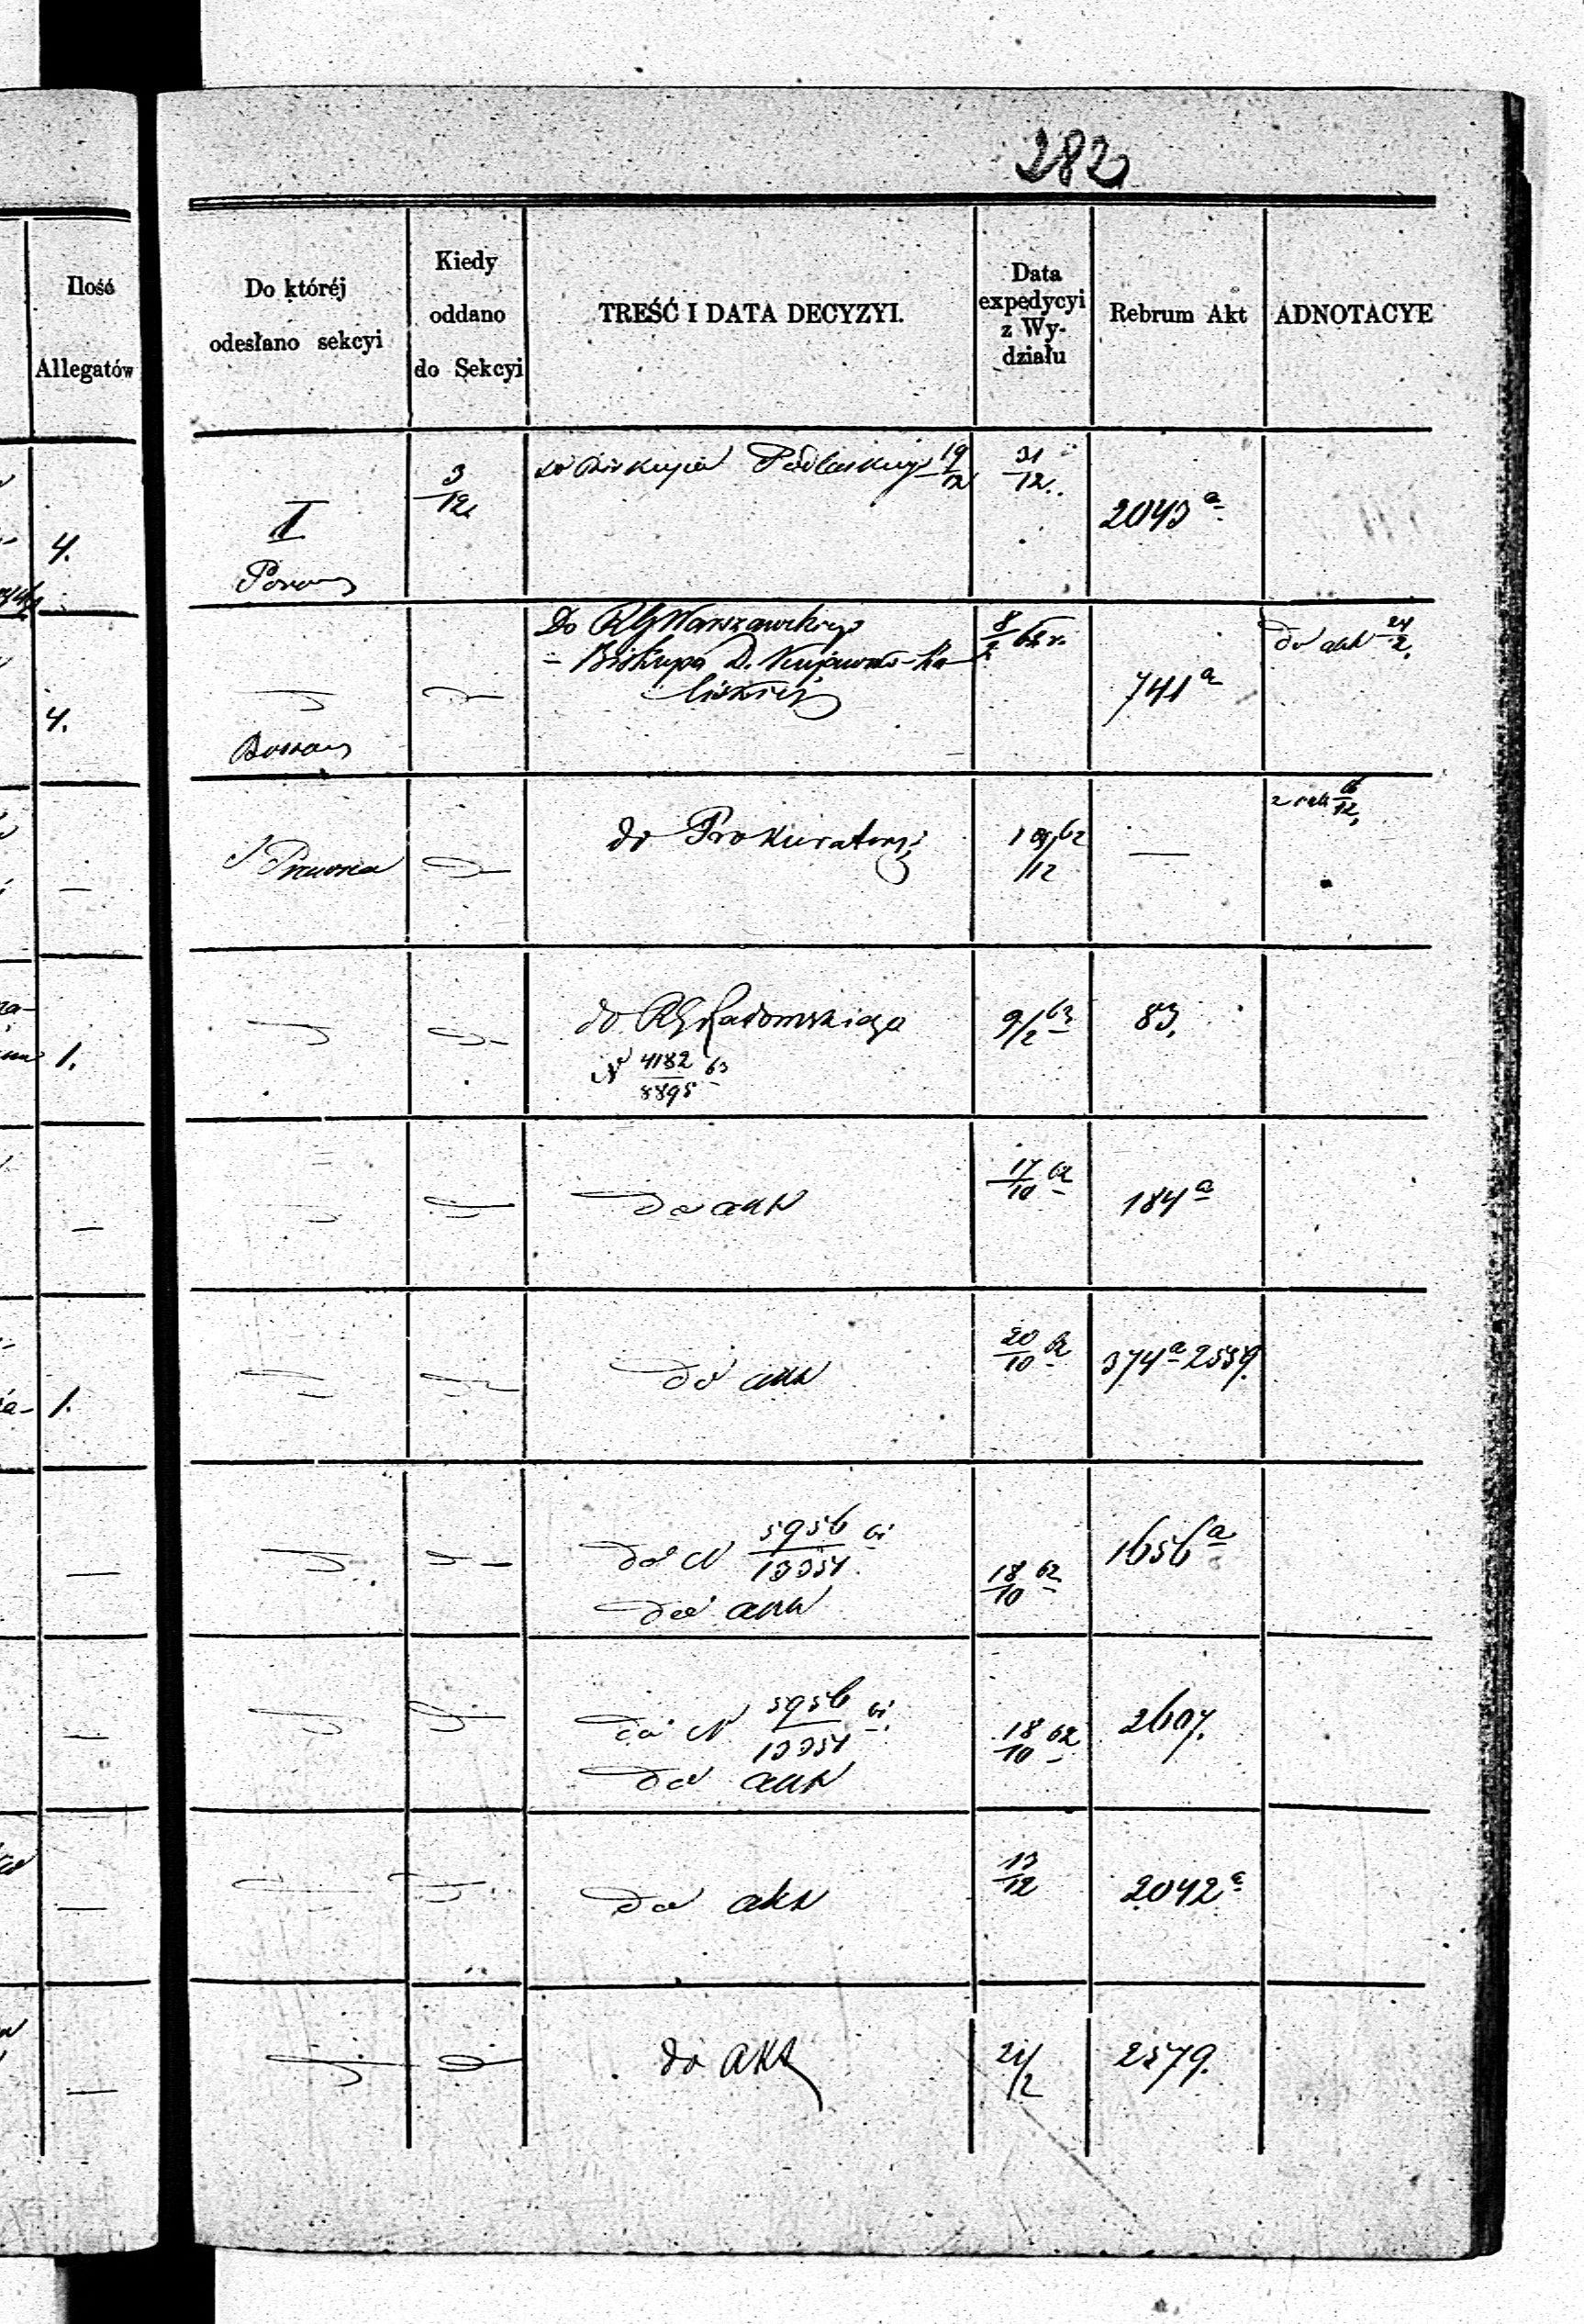 282
Ilość
Allegatów
Do któréj
odesłano sekcyi
Kiedy
oddano
do Sekcyi
TREŚĆ I DATA DECYZYI.
Data
expedycyi
z Wy-
działu
Rebrum Akt
ADNOTACYE
4.
II
3/12
do Biskupa Podlaskiego 19/12
31/12.
2043 a
4.
Do RG Warszawskiego
– Biskupa D. Kujawsko-Ka
liskiéj
8/2 63 r.
741 a
do akt 24/2.
—
do Prokuratoryi
19/12 62
—
1.
do RG Radomskiego
N 4182/8895 63
9/2 63
83.
—
do akt
17/10 62
184 a
1.
do akt
20/10 62
374 a 2559.
—
do N 5956/13354 61
do akt
18/10 62
1656 a
—
do N 5956/13354 61
do akt
18/10 62
2607.
—
do akt
13/12
2042 a
—
do akt
21/2
2579.